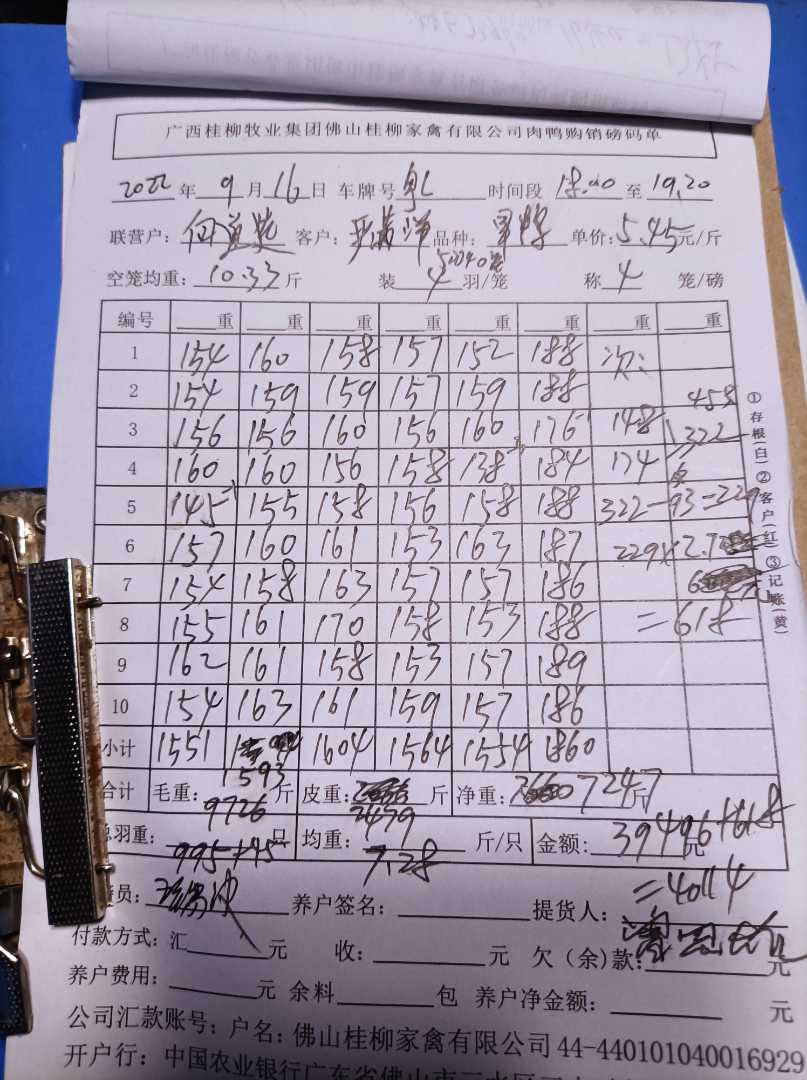 广西桂柳牧业集团佛山桂柳家禽有限公司肉鸭购销磅码单
2022年 9月 16日 车牌号 时间段 18.00 至 19.20
联营户: 客户: 品种: 单价: 5.45元/斤
空笼均重: 10.33斤 装 4 羽/笼 称 4 笼/磅
编号 重 重 重 重 重 重 重 重
1 154 160 158 157 152 188 次:
2 154 159 159 157 159 188 458
3 156 156 160 156 160 176 148 322
4 160 160 156 158 138 184 174
5 145 155 158 156 158 188 322-93=229
6 157 160 161 153 163 187 229×2.7
7 154 158 163 157 157 186
8 155 161 170 158 153 188 =618
9 162 161 158 153 157 189
10 154 163 161 159 157 186
小计 1551 1593 1604 1564 1554 1860
合计 毛重: 9726 斤 皮重: 2479 斤 净重: 7247斤
总羽重: 995+45 只 均重: 7.28 斤/只 金额: 39496+618元
=40114
员: 养户签名: 提货人:
付款方式: 汇 元 收: 元 欠(余)款: 元
养户费用: 元 余料 包 养户净金额: 元
公司汇款账号: 户名: 佛山桂柳家禽有限公司 44-440101040016929
开户行: 中国农业银行广东省佛山市三水区
①存根(白)②客户(红)③记账(黄)